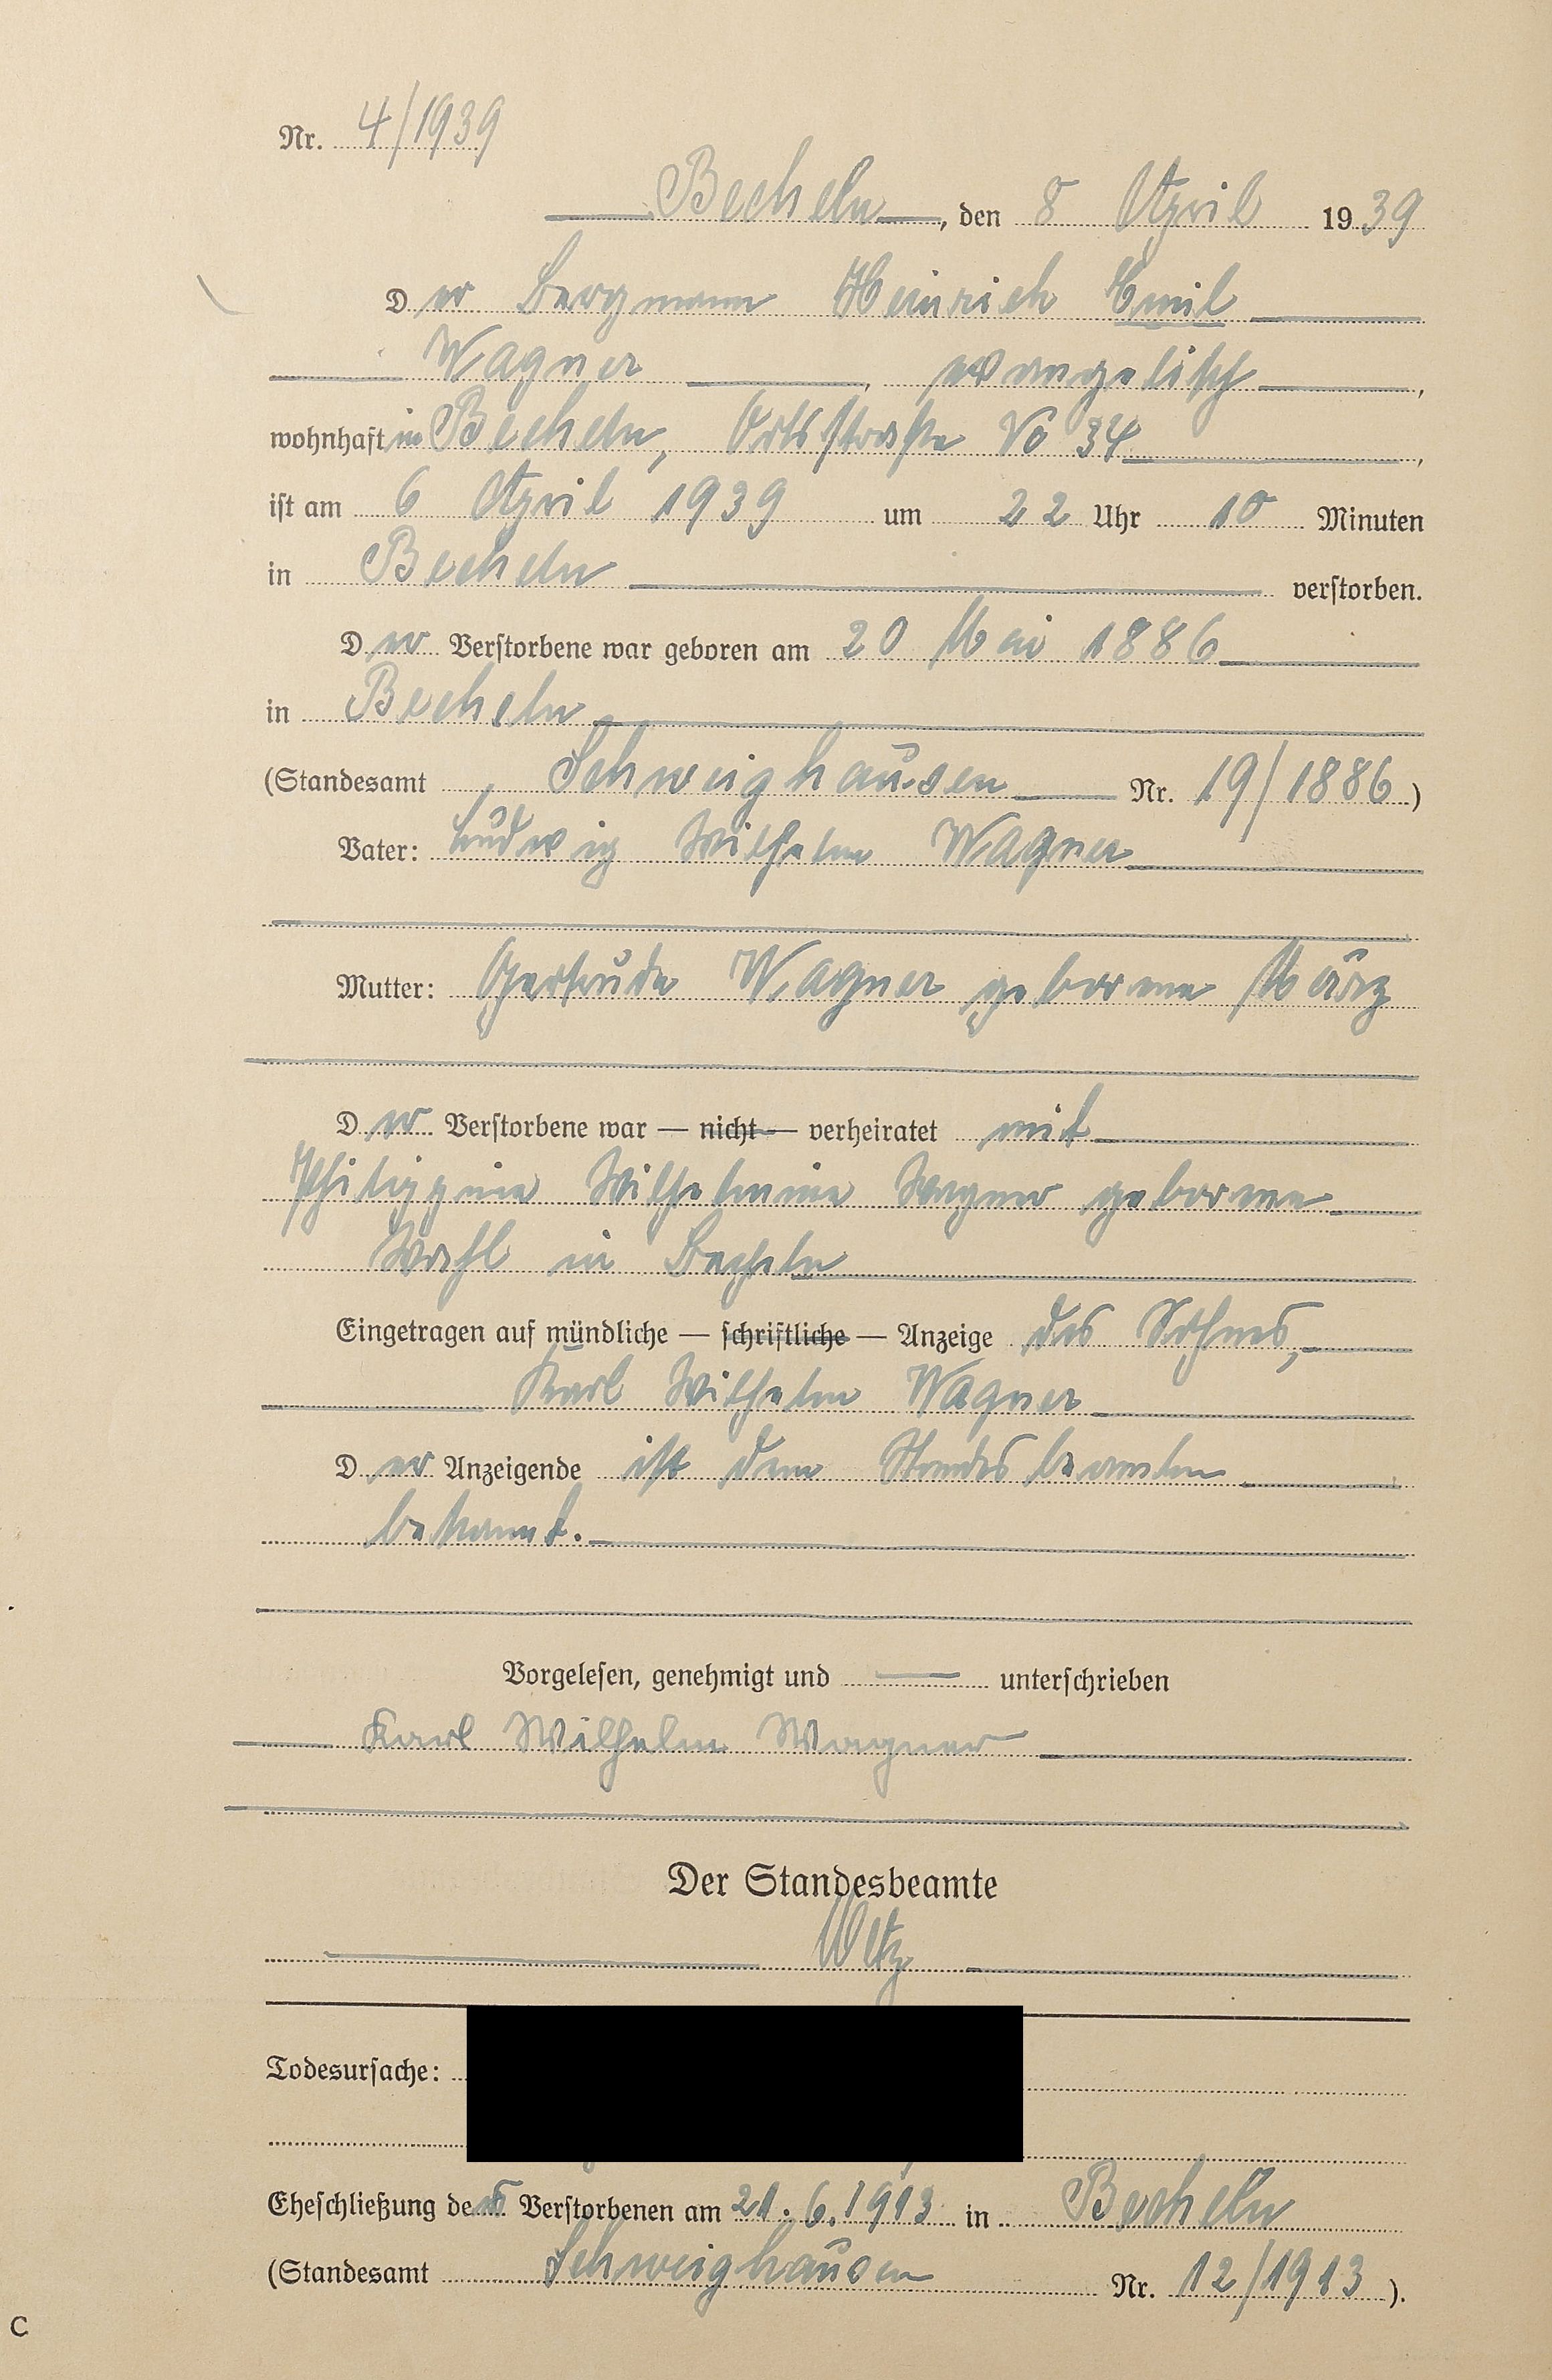 Nr. 4/1939
Becheln, den 8 April 1939
Der Bergmann Heinrich Emil
Wagner, evangelisch,
wohnhaft in Becheln, Ortsstraße No 34,
ist am 6 April 1939 um 22 Uhr 10 Minuten
in Becheln verstorben.
Der Verstorbene war geboren am 20 Mai 1886
in Becheln
(Standesamt Schweighausen Nr. 19/1886)
Vater: Ludwig Wilhelm Wagner
Mutter: Gertrude Wagner geborene März
Der Verstorbene war — nicht — verheiratet mit
Philippine Wilhelmine Wagner geborene
Wahl in Becheln
Eingetragen auf mündliche — schriftliche — Anzeige des Sohnes,
Karl Wilhelm Wagner
Der Anzeigende ist dem Standesbeamten
bekannt.
Vorgelesen, genehmigt und unterschrieben
Karl Wilhelm Wagner
Der Standesbeamte
Todesursache:
Eheschließung des Verstorbenen am 21.6.1913 in Becheln
(Standesamt Schweighausen Nr. 12/1913).
C